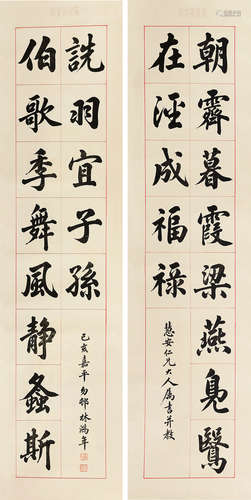 朝霽暮霞梁燕鳧鷖
在涇成福祿
慧安仁兄大人属書并教
伯歌季舞風静螽斯
詵羽宜子孫
己亥嘉平勿邨林鴻年